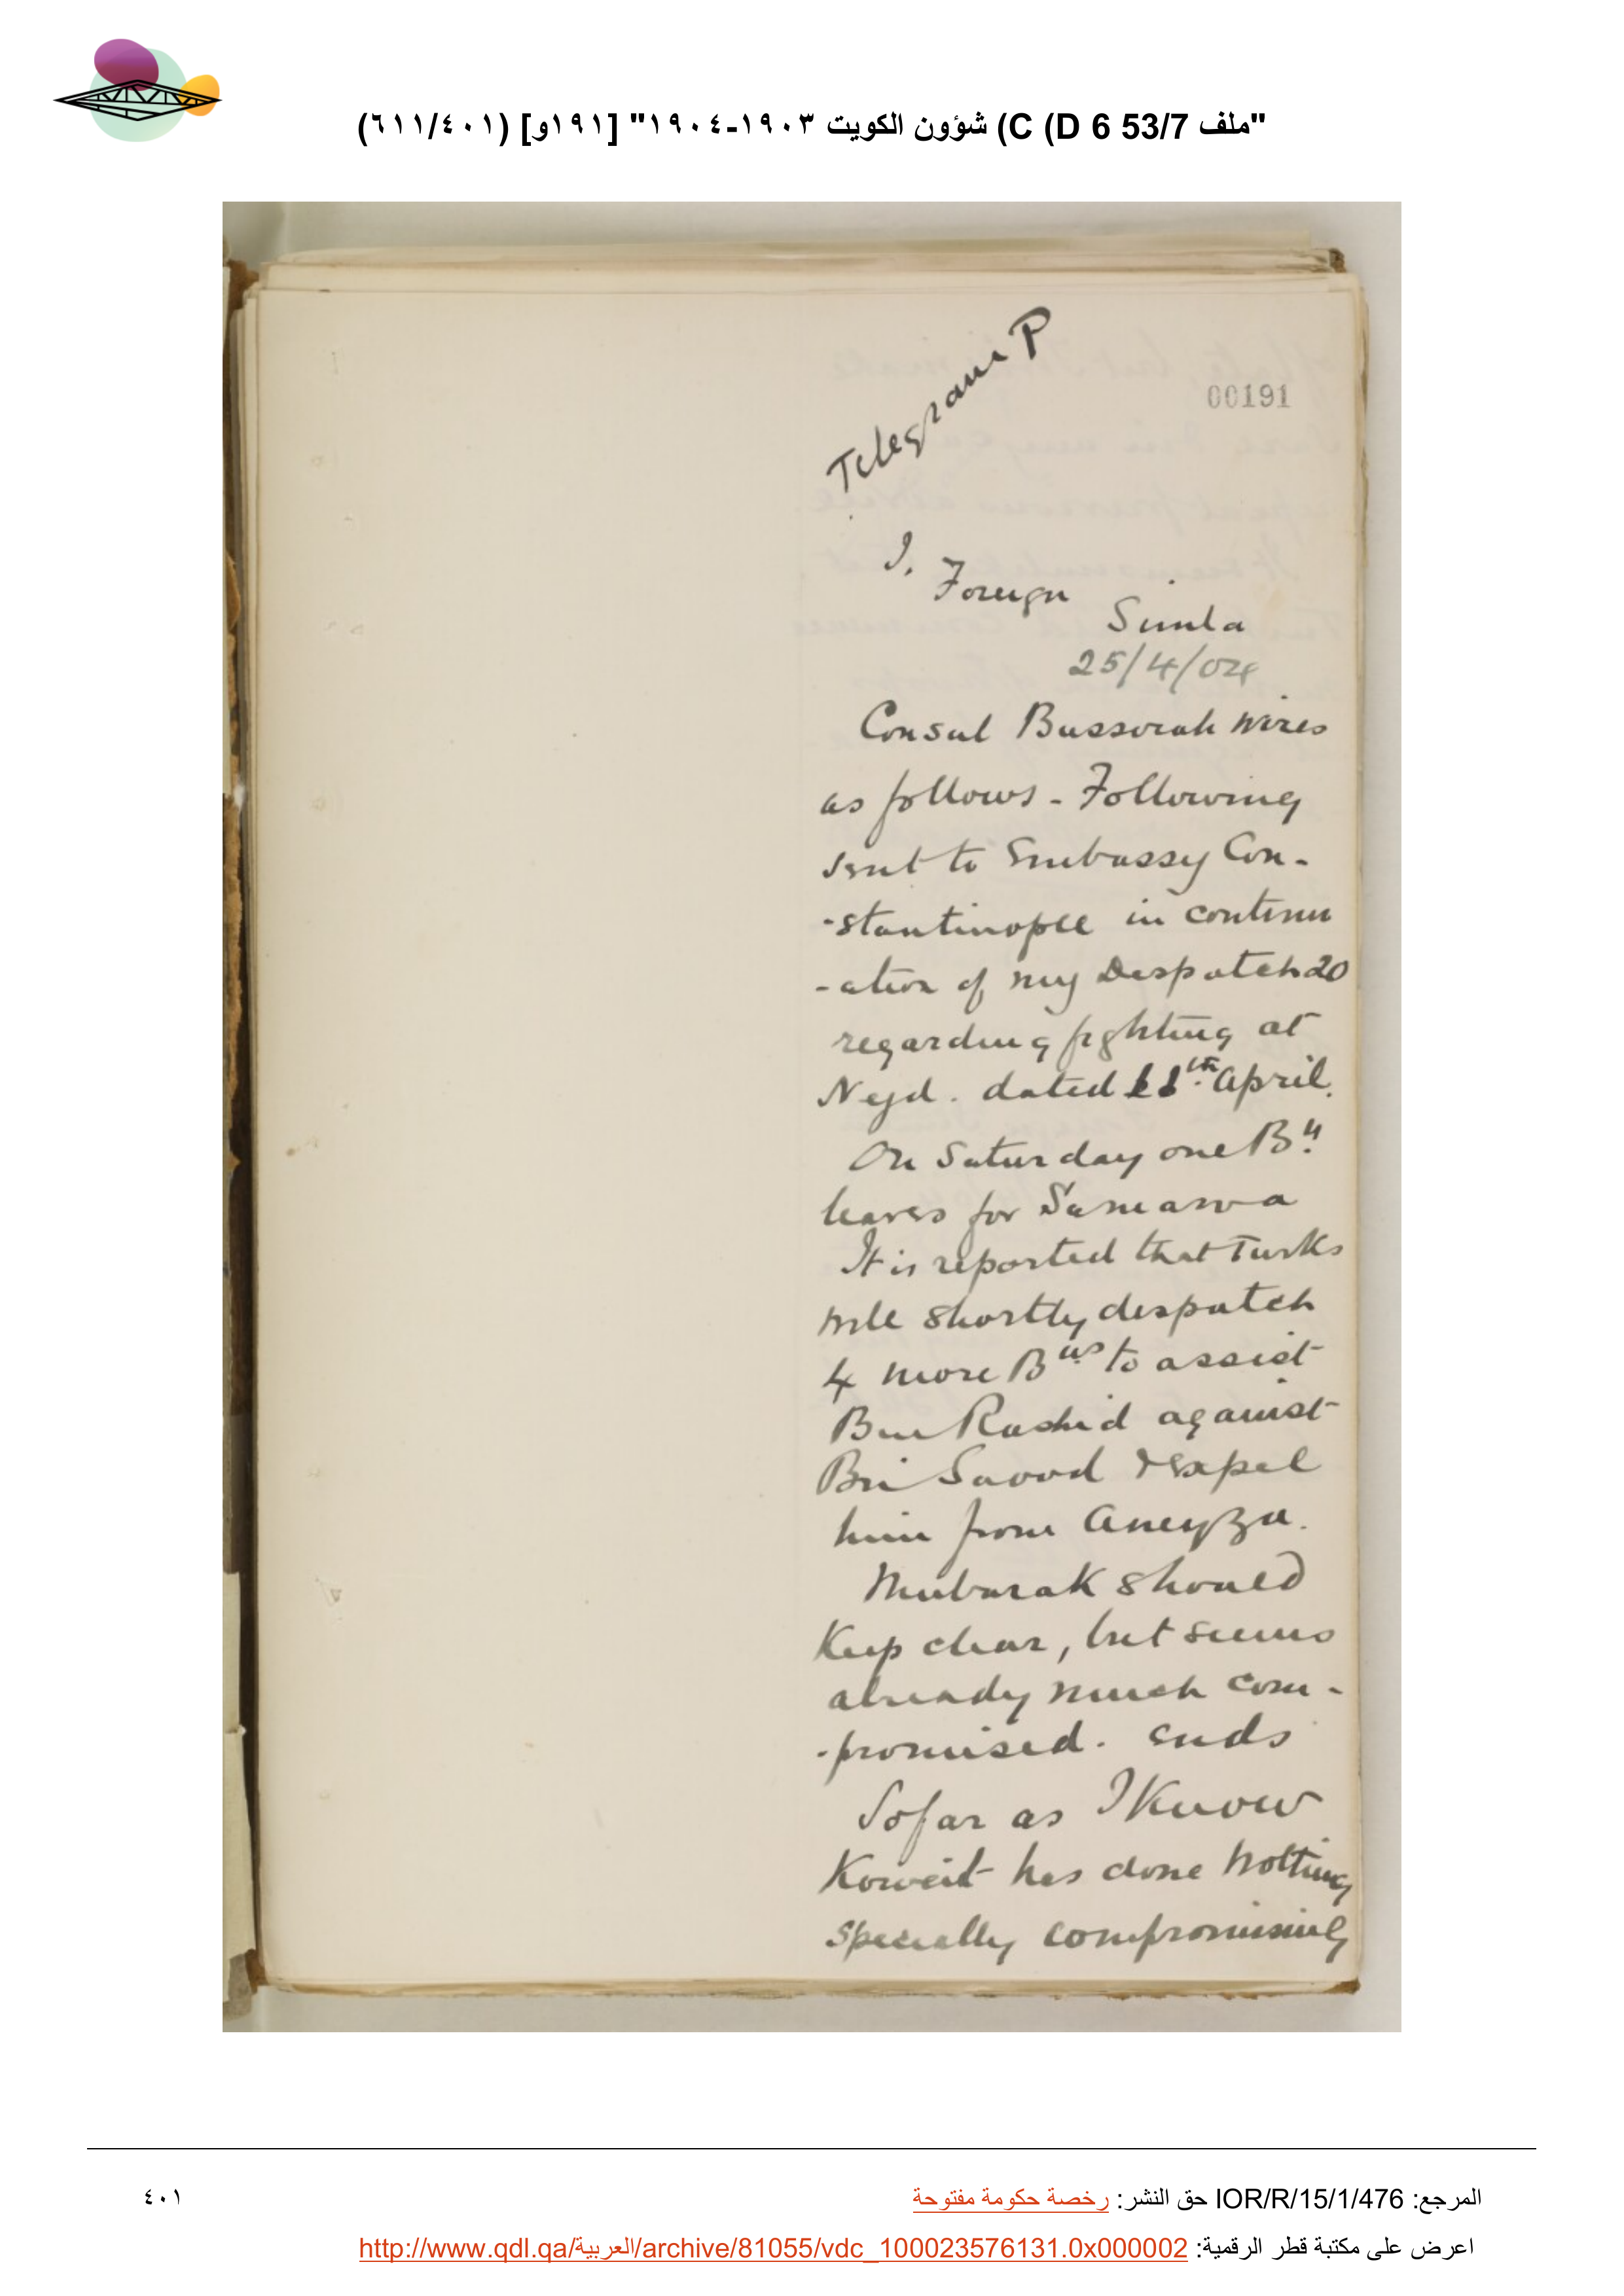 "ملف 53/7 D 6) C) شؤون الكويت ١٩٠٣-١٩٠٤" [١٩١و] (٦١١/٤٠١)
Telegram P
00191
Foreign
Simla
25/4/04
Consul Bussorah wires
as follows - Following
sent to Embassy Con-
-stantinople in continu
-ation of my Despatch 20
regarding fighting at
Nejd. dated 11th April.
On Saturday one Bn
leaves for Samawa
It is reported that Turks
will shortly despatch
4 more Bns to assist
Bin Rashid against
Bin Saood & expel
him from Aneyza.
Mubarak should
Keep clear, but seems
already much com-
-promised. ends
So far as I Know
Koweit has done nothing
specially compromising
المرجع: IOR/R/15/1/476 حق النشر: رخصة حكومة مفتوحة
٤٠١
اعرض على مكتبة قطر الرقمية: http://www.qdl.qa/العربية/archive/81055/vdc_100023576131.0x000002